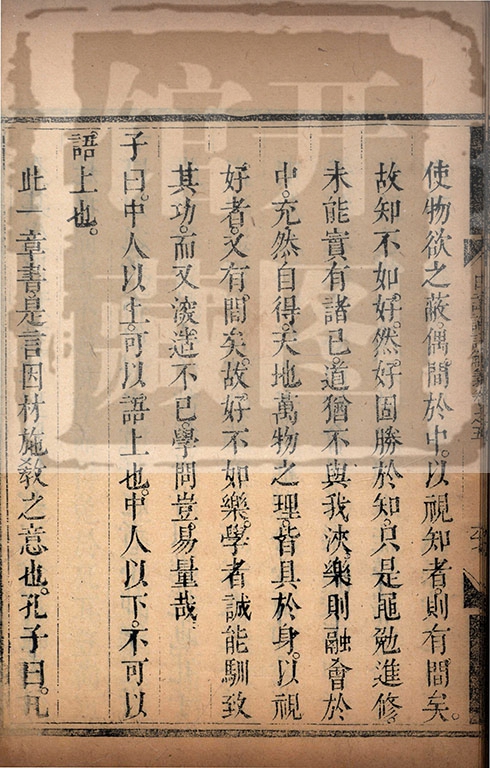 使物欲之蔽。偶間於中。以視知者。則有間矣。
故知不如好。然好固勝於知。只是黽勉進修。
未能實有諸已。道猶不與我浹。樂則融會於
中。充然自得。天地萬物之理。皆具於身。以視
好者。又有間矣。故好不如樂。學者誠能馴致
其功。而又深造不已。學問豈易量哉
子曰。中人以上。可以語上也。中人以下。不可以
語上也。
此一章書。是言因材施敎之意也。孔子曰。凡